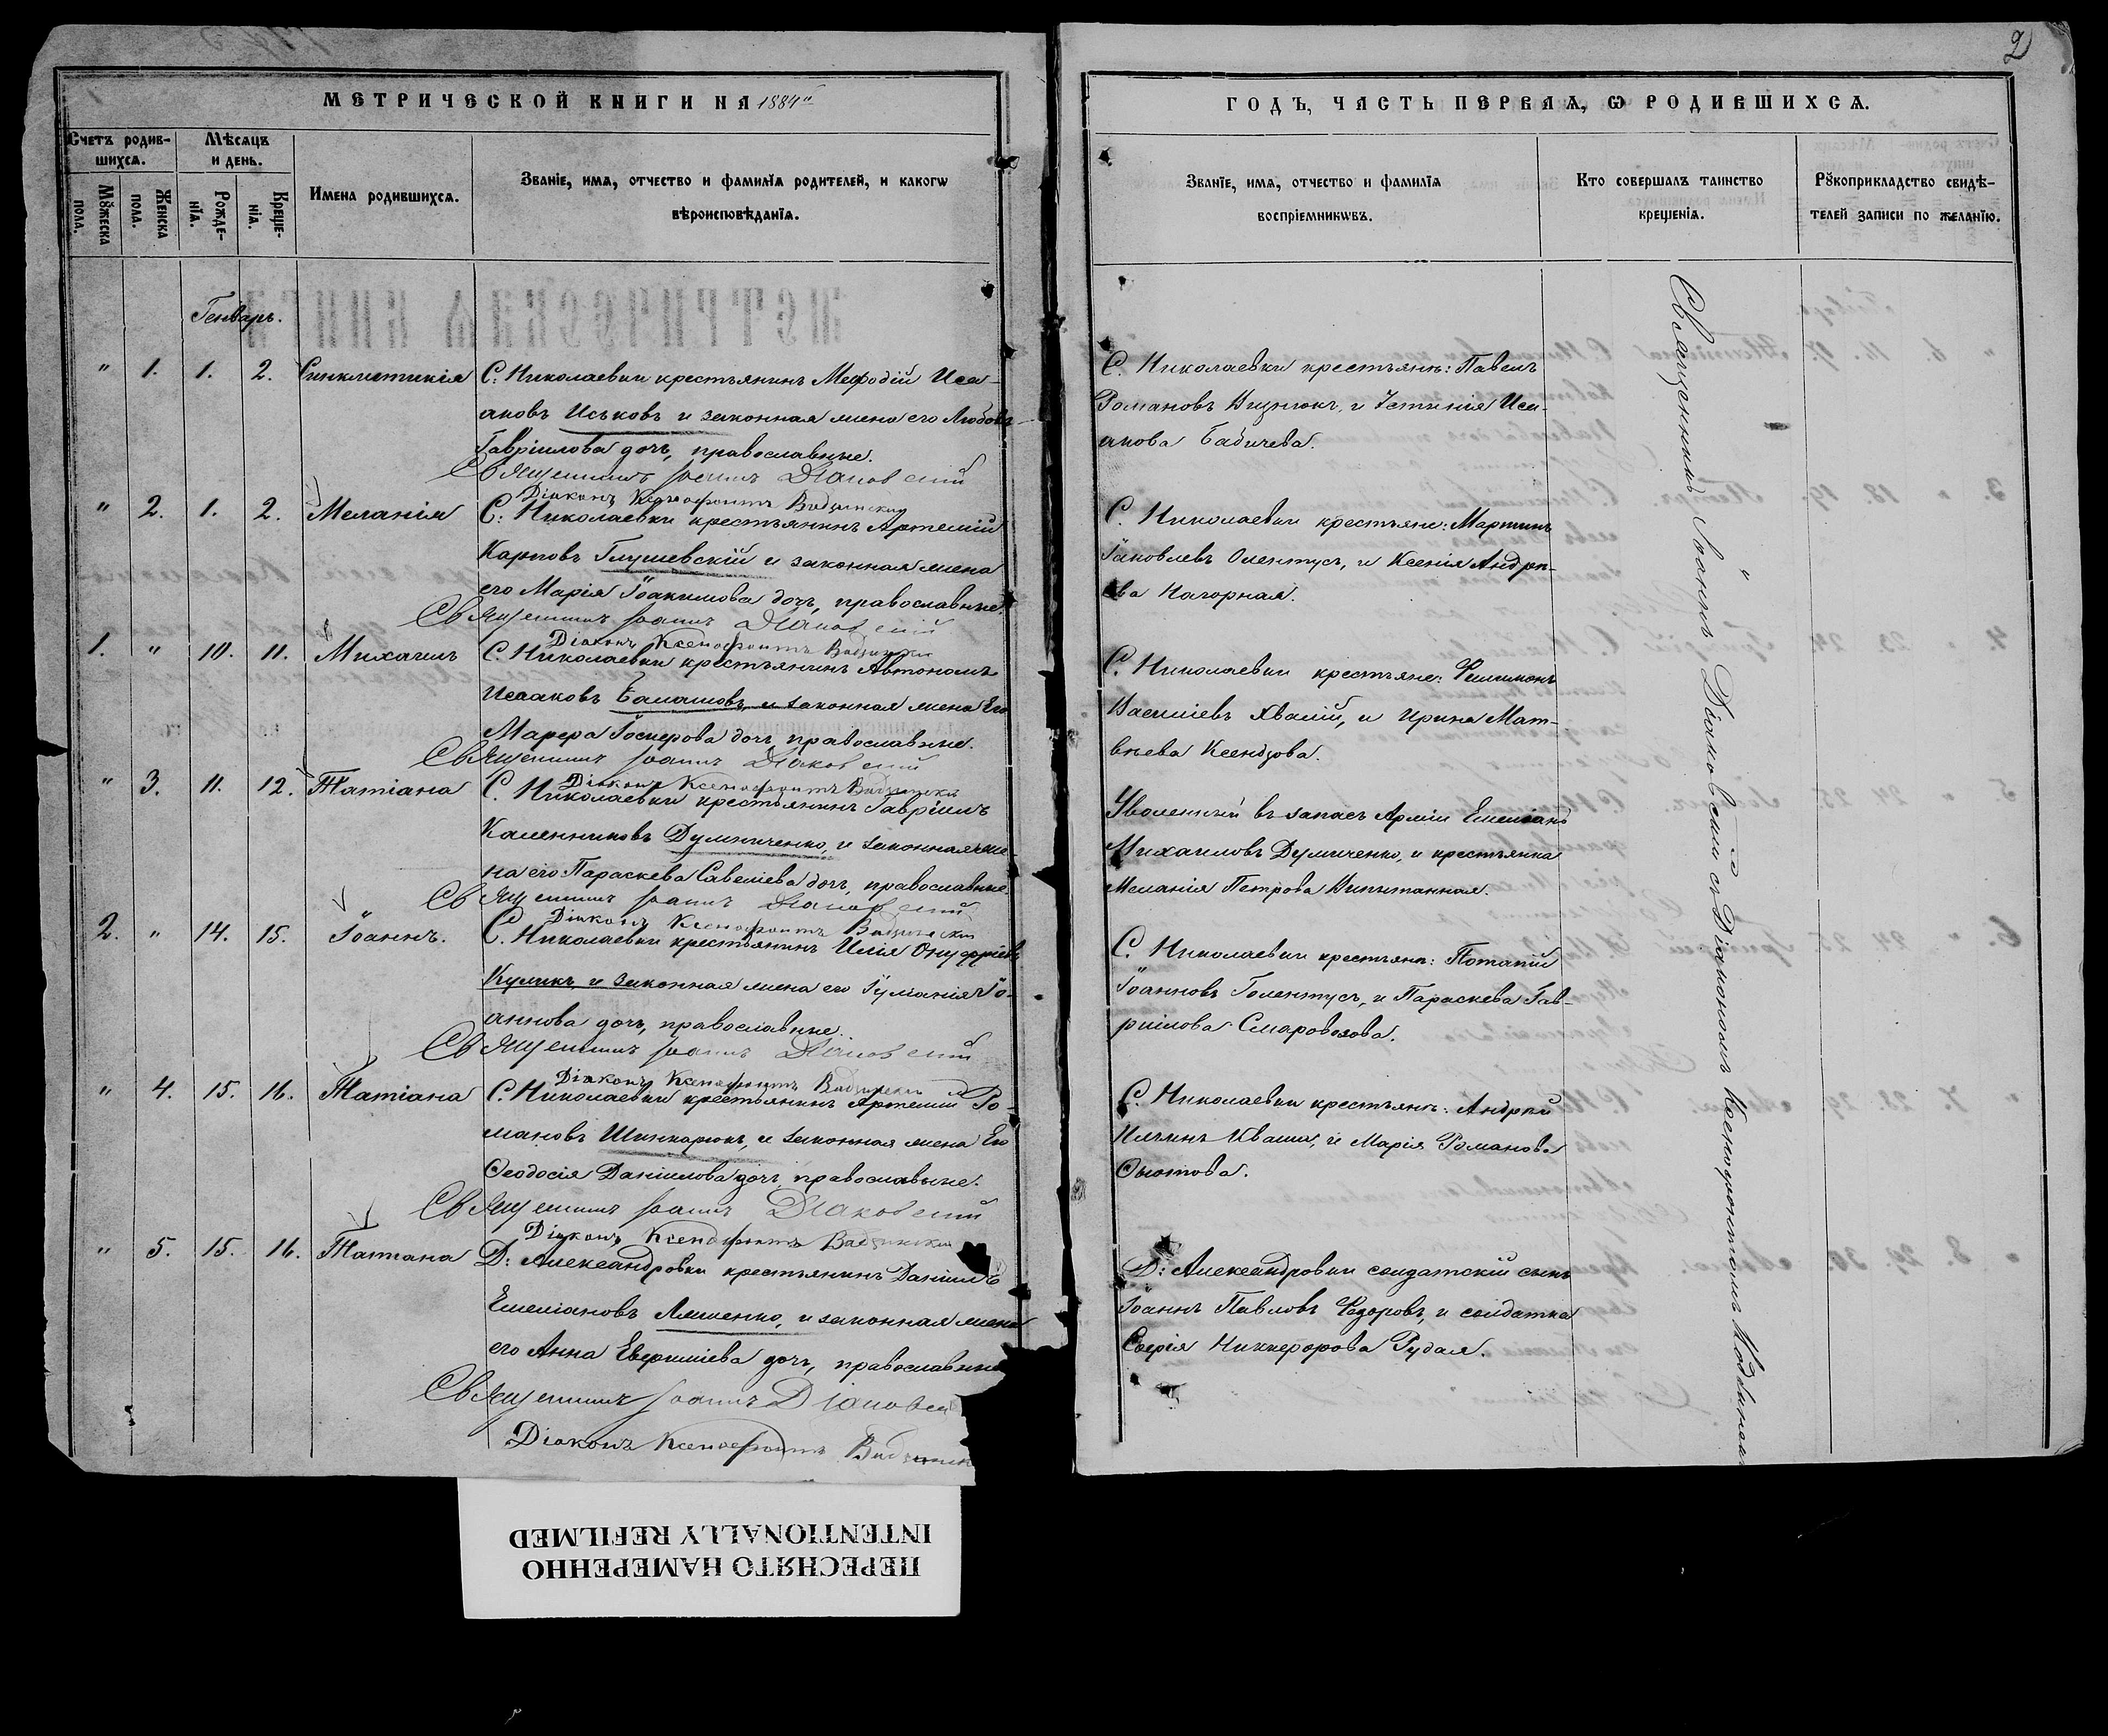 2
МЕТРИЧЕСКОЙ КНИГИ НА 1884й
ГОДЪ, ЧАСТЬ ПЕРВАЯ, Ѡ РОДИВШИХСѦ.
Счетъ родив-
шихсѧ.
Мѣсѧцъ
и день.
Мꙋжеска
пола.
Женска
пола.
Рожде-
нїѧ.
Креще-
нїѧ.
Имена родившихсѧ.
Званїе, имѧ, отчество и фамилїѧ родителей, и какогѡ
вѣроисповѣданїѧ.
Званїе, имѧ, отчество и фамилїѧ
воспрїемникѡвъ.
Кто совершалъ таинство
крещенїѧ.
Рꙋкоприкладство свидѣ-
телей записи по желанїю.
Генварь.
" 1. 1. 2. Синклитикія
С: Николаевки крестьянинъ Мефодій Иса-
аковъ Иськовъ и законная жена его Любовь
Гавріилова дочь, православные.
Священникъ Іоаннъ Діаковскій
Діаконъ Ксенофонтъ
С. Николаевки крестьяне: Павелъ
Романовъ и Устинія Иса-
акова Бабичева.
" 2. 1. 2. Меланія
С: Николаевки крестьянинъ Артемій
Карповъ Глушевскій и законная жена
его Марія Іоакимова дочь, православные.
Священникъ Іоаннъ Діаковскій
Діаконъ Ксенофонтъ
С. Николаевки крестьяне: Мартинъ
Іаковлевъ Олентусъ, и Ксенія Андре-
ева Нагорная.
1. " 10. 11. Михаилъ
С. Николаевки крестьянинъ Автономъ
Исааковъ Балашовъ, и законная жена Его
Марфа дочь, православные.
Священникъ Іоаннъ Діаковскій
Діаконъ Ксенофонтъ
С. Николаевки крестьяне: Филимонъ
Василіевъ Хвалій, и Ирина Мат-
вѣева Ксендзова.
" 3. 11. 12. Татіана
С. Николаевки крестьянинъ Гавріилъ
Каленниковъ Думниченко, и законная же-
на его Параскева Савеліева дочь, православные
Священникъ Іоаннъ Діаковскій
Діаконъ Ксенофонтъ
Уволенный въ запасъ Арміи Емеліанъ
Михаиловъ Думиченко, и крестьянка
Меланія Петрова
2. " 14. 15. Іоаннъ.
С. Николаевки крестьянинъ Илія Онуфріевъ
Куликъ, и законная жена его Іуліанія Іо-
аннова дочь, православные.
Священникъ Іоаннъ Діаковскій
Діаконъ Ксенофонтъ
С. Николаевки крестьяне: Потапій
Іоанновъ Голентусъ, и Параскева Гав-
ріилова Смаровозова.
" 4. 15. 16. Татіана
С. Николаевки крестьянинъ Артемій Ро-
мановъ Шинкарюкъ, и законная жена Его
Ѳеодосія Даніилова дочь, православные.
Священникъ Іоаннъ Діаковскій
Діаконъ Ксенофонтъ
С. Николаевки крестьяне: Андрей
Ильинъ Кваша, и Марія Романова
" 5. 15. 16. Татіана
Д: Александровки крестьянинъ Даніилъ
Емеліановъ Ляшенко, и законная жена
его Анна Евфиміева дочь, православные
Священникъ Іоаннъ Діаковскій
Діаконъ Ксенофонтъ
Д: Александровки солдатскій сынъ
Іоаннъ Павловъ Федоровъ, и солдатка
Софія Никифорова Рудая.
Священникъ Іоаннъ Діаковскій съ Діакономъ Ксенофонтомъ
ПЕРЕСНЯТО НАМЕРЕННО
INTENTIONALLY REFILMED